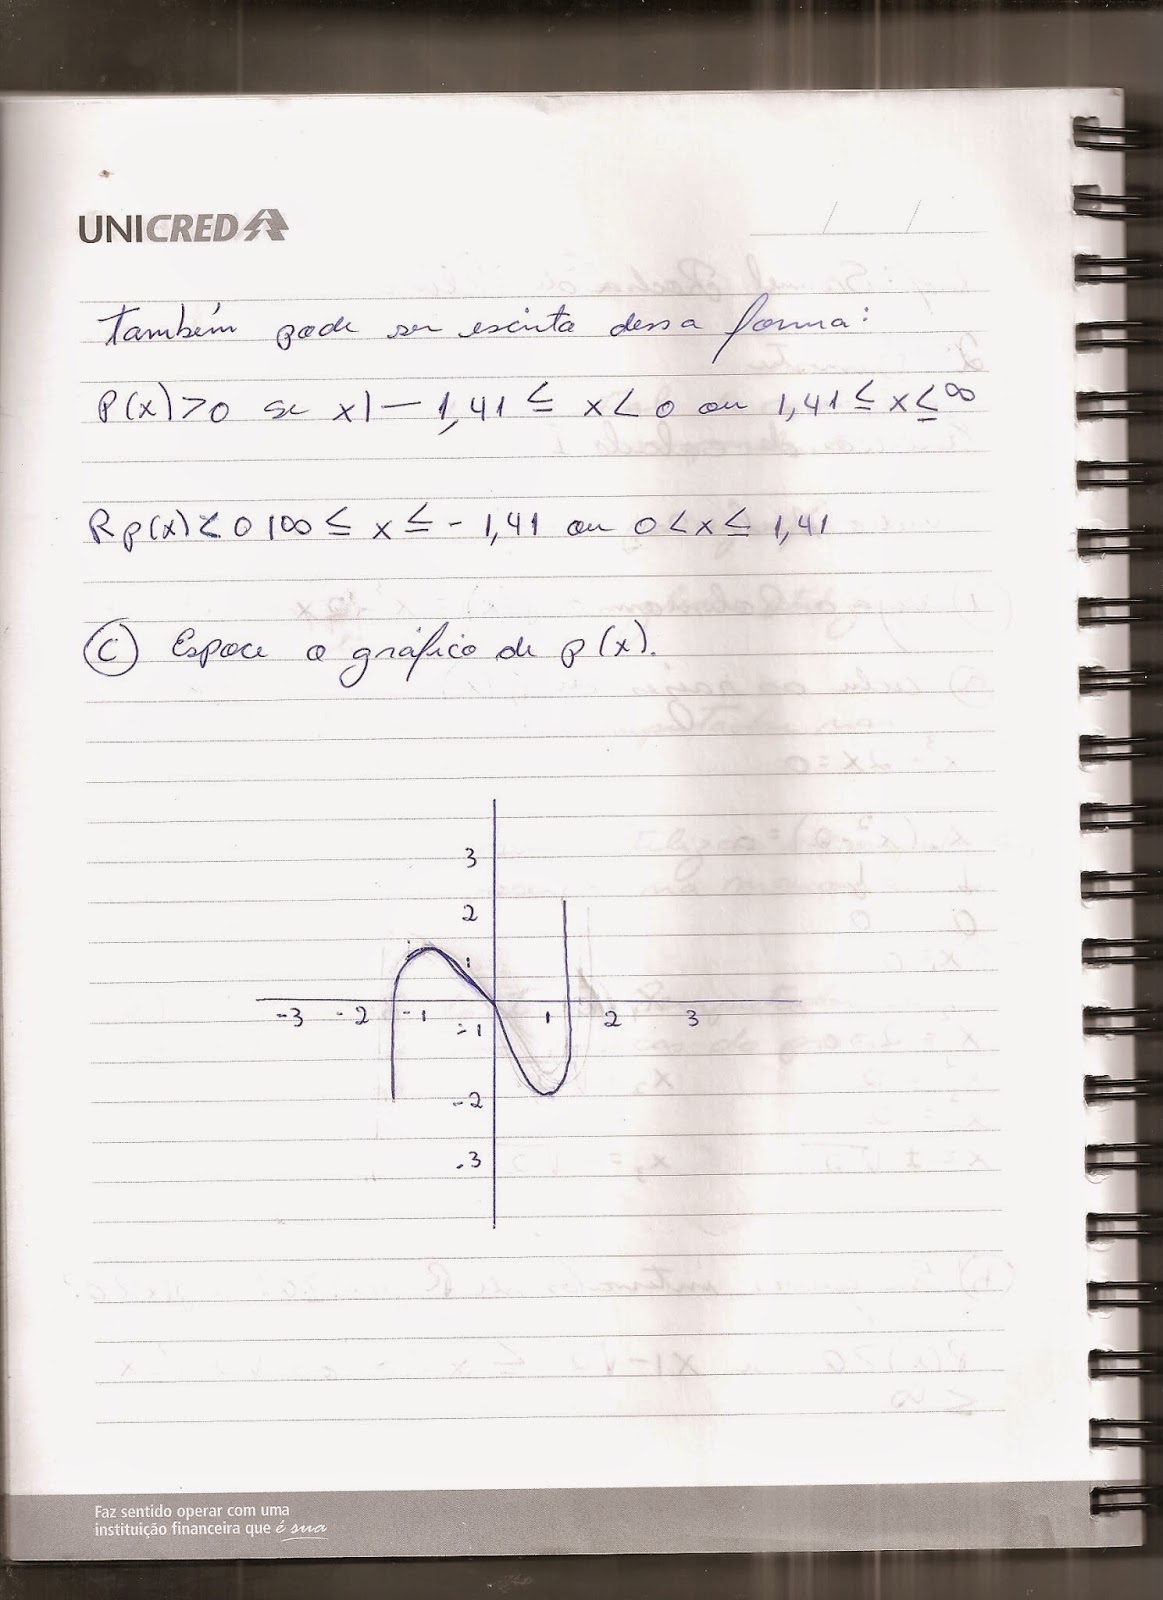 UNICRED
/ /
Também pode ser escrita dessa forma:
P(x)>0 se x|-1,41 ≤ x<0 ou 1,41 ≤ x ≤ ∞
R p(x)<0 |∞ ≤ x ≤ -1,41 ou 0<x≤ 1,41
(C) Espoce o gráfico de p(x).
3
2
1
-3 -2 -1 1 2 3
-1
-2
-3
Faz sentido operar com uma
instituição financeira que é sua